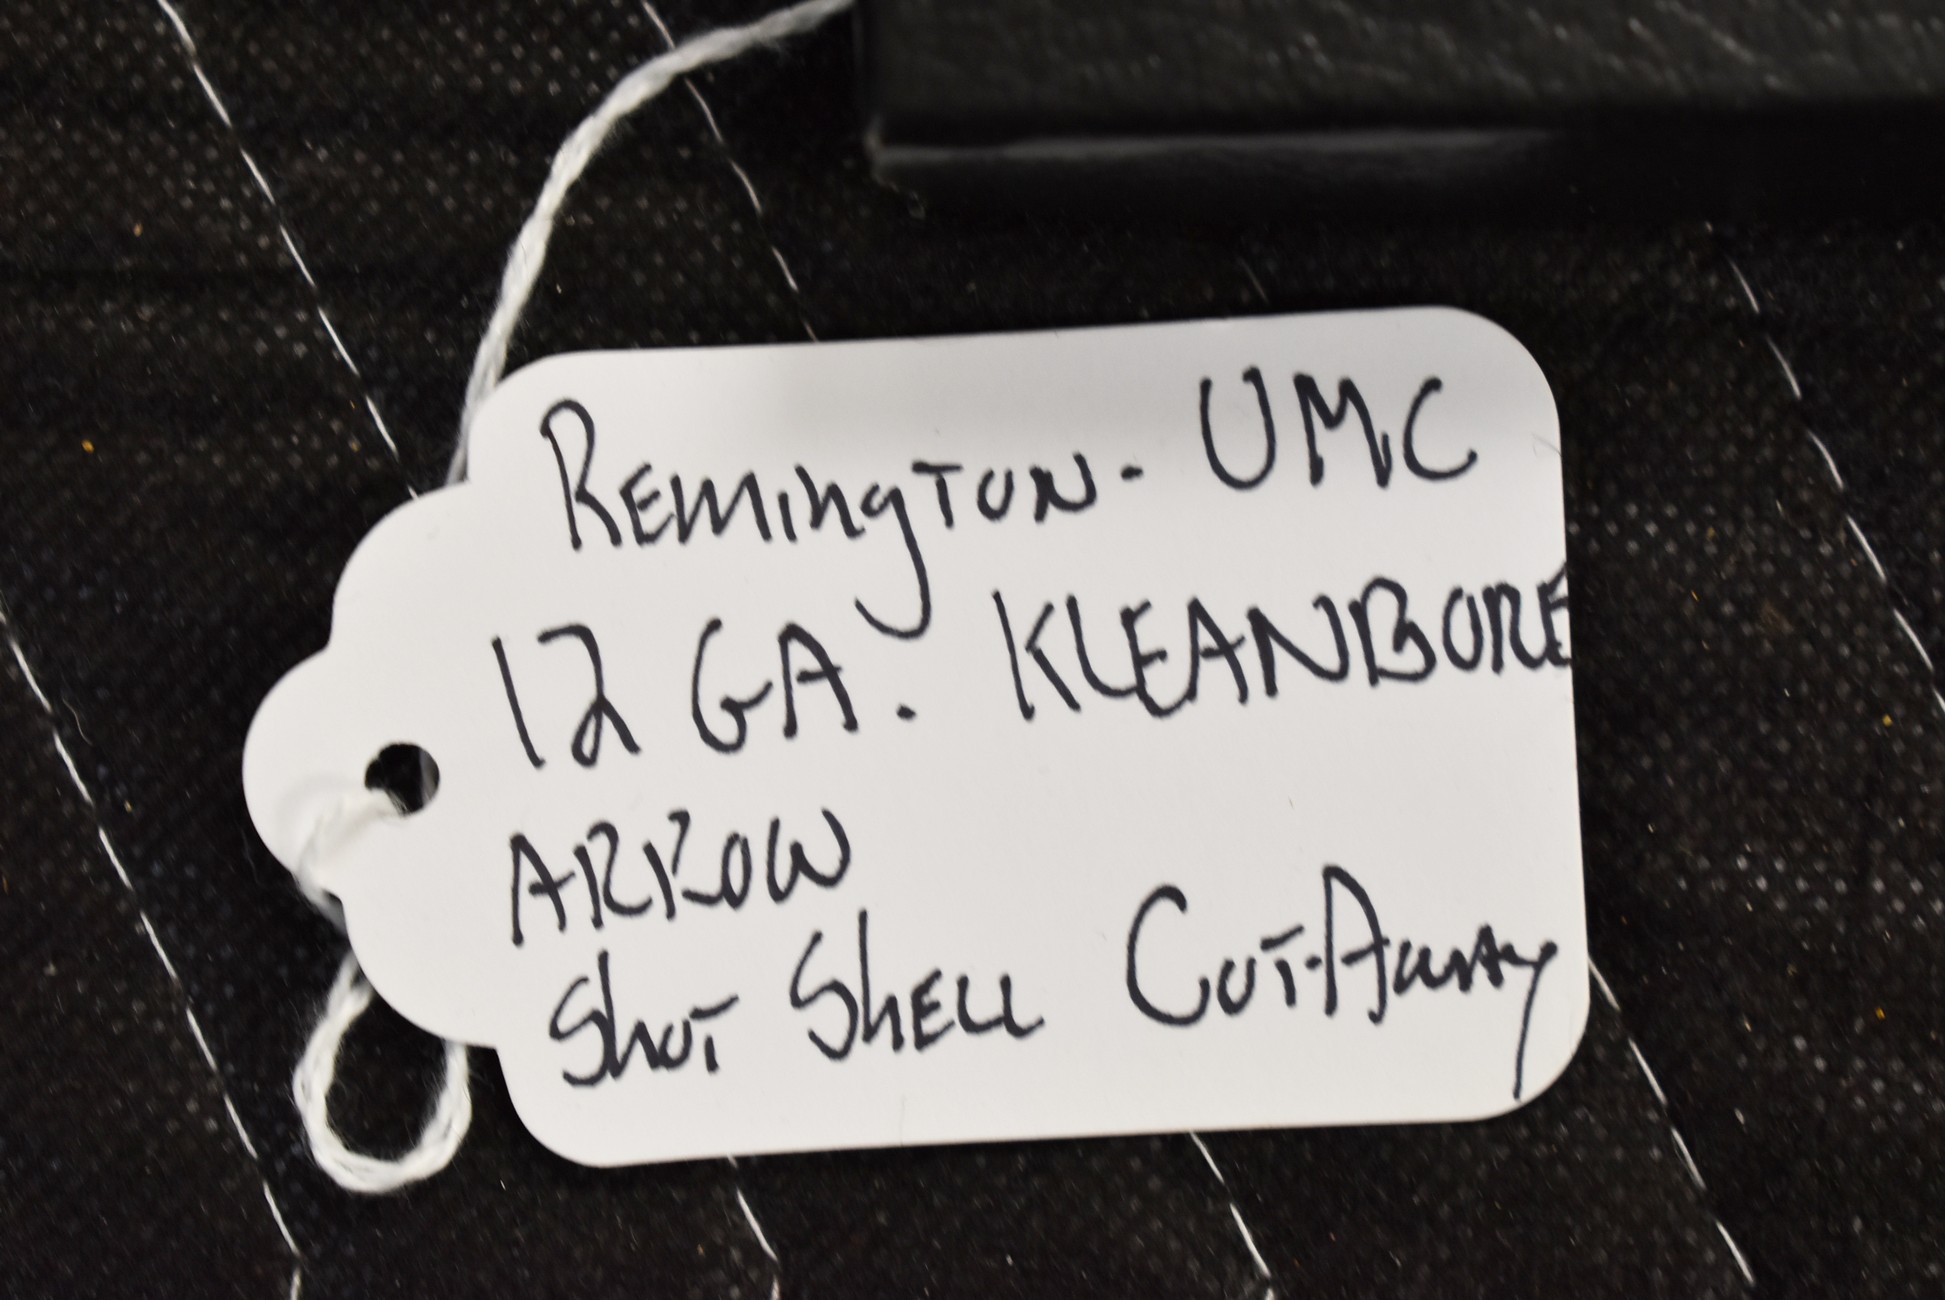 Remington - UMC
12 GA. KLEANBORE
ARROW
Shot Shell Cut-Away